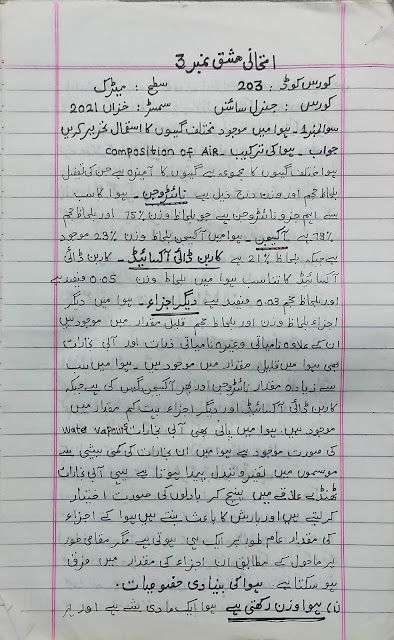 امتحانی مشق نمبر 3
کورس کوڈ : 203 سطح : میٹرک
کورس : جنرل سائنس سمسٹر : خزاں 2021
سوال نمبر 1 ۔ ہوا میں موجود مختلف گیسوں کا استعمال تحریر کریں
جواب ۔ ہوا کی ترکیب ۔ Composition of Air
ہوا مختلف گیسوں کا مجموعی ہے گیسوں کا آمیزہ ہے جن کی تفصیل
بلحاظ حجم اور وزن درج ذیل ہے نائٹروجن ۔ ہوا کا سب
سے اہم جزو نائٹروجن ہے جو بلحاظ وزن 75% اور بلحاظ حجم
78% ہے آکسیجن ۔ ہوا میں آکسیجن بلحاظ وزن 23% موجود
ہے جبکہ بلحاظ 21% ہے کاربن ڈائی آکسائیڈ ۔ کاربن ڈائی
آکسائیڈ کا تناسب ہوا میں بلحاظ وزن 0.05 فیصد ہے
اور بلحاظ حجم 0.03 فیصد ہے دیگر اجزاء ۔ ہوا میں دیگر
اجزاء بلحاظ وزن اور بلحاظ حجم قلیل مقدار میں موجود ہیں
ان کے علاوہ نامیاتی وغیرہ نامیاتی ذرات اور آبی بخارات
بھی ہوا میں قلیل مقدار میں موجود ہیں ۔ ہوا میں سب
سے زیادہ مقدار نائٹروجن اور پھر آکسیجن گیس کی ہے جبکہ
کاربن ڈائی آکسائیڈ اور دیگر اجزاء بہت کم مقدار میں
موجود ہیں ہوا میں پانی بھی آبی بخارات water vapours
کی صورت موجود ہے ہوا میں ان بخارات کی کمی بیشی سے
موسموں میں تغیر و تبدل پیدا ہوتا ہے یہی آبی بخارات
ٹھنڈے علاقے میں پہنچ کر بادلوں کی صورت اختیار
کر لیتے ہیں اور بارش کا باعث بنتے ہیں ہوا کے اجزاء
کی مقدار عام طور پر ایک ہی ہوتی ہے مگر مقامی طور
پر ماحول کے مطابق ان اجزاء کی مقدار میں فرق
ہو سکتا ہے ہوا کی بنیادی خصوصیات ۔
(i) ہوا وزن رکھتی ہے ہوا ایک مادی شے ہے اور ہر